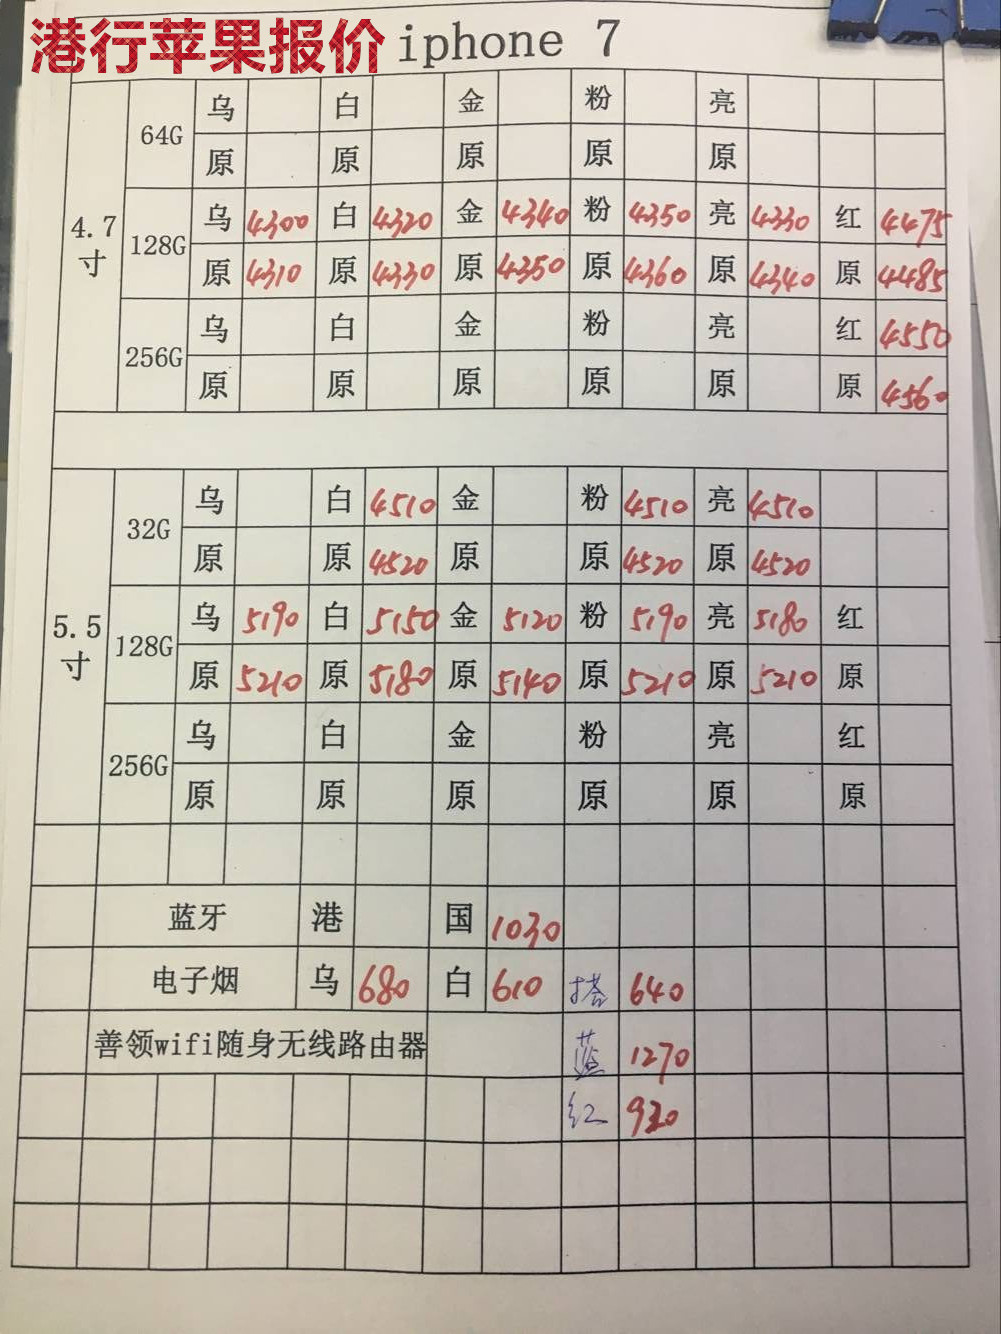 港行苹果报价 iphone 7
乌 白 金 粉 亮
64G
原 原 原 原 原
4.7寸
乌 4300 白 4320 金 4340 粉 4350 亮 4330 红 4475
128G
原 4310 原 4330 原 4350 原 4360 原 4340 原 4485
乌 白 金 粉 亮 红 4550
256G
原 原 原 原 原 原 4560
乌 白 4510 金 粉 4510 亮 4510
32G
原 原 4520 原 原 4520 原 4520
5.5寸
乌 5190 白 5150 金 5120 粉 5190 亮 5180 红
128G
原 5210 原 5180 原 5140 原 5210 原 5210 原
乌 白 金 粉 亮 红
256G
原 原 原 原 原 原
蓝牙 港 国 1030
电子烟 乌 680 白 610 搭 640
善领wifi随身无线路由器 蓝 1270
红 920